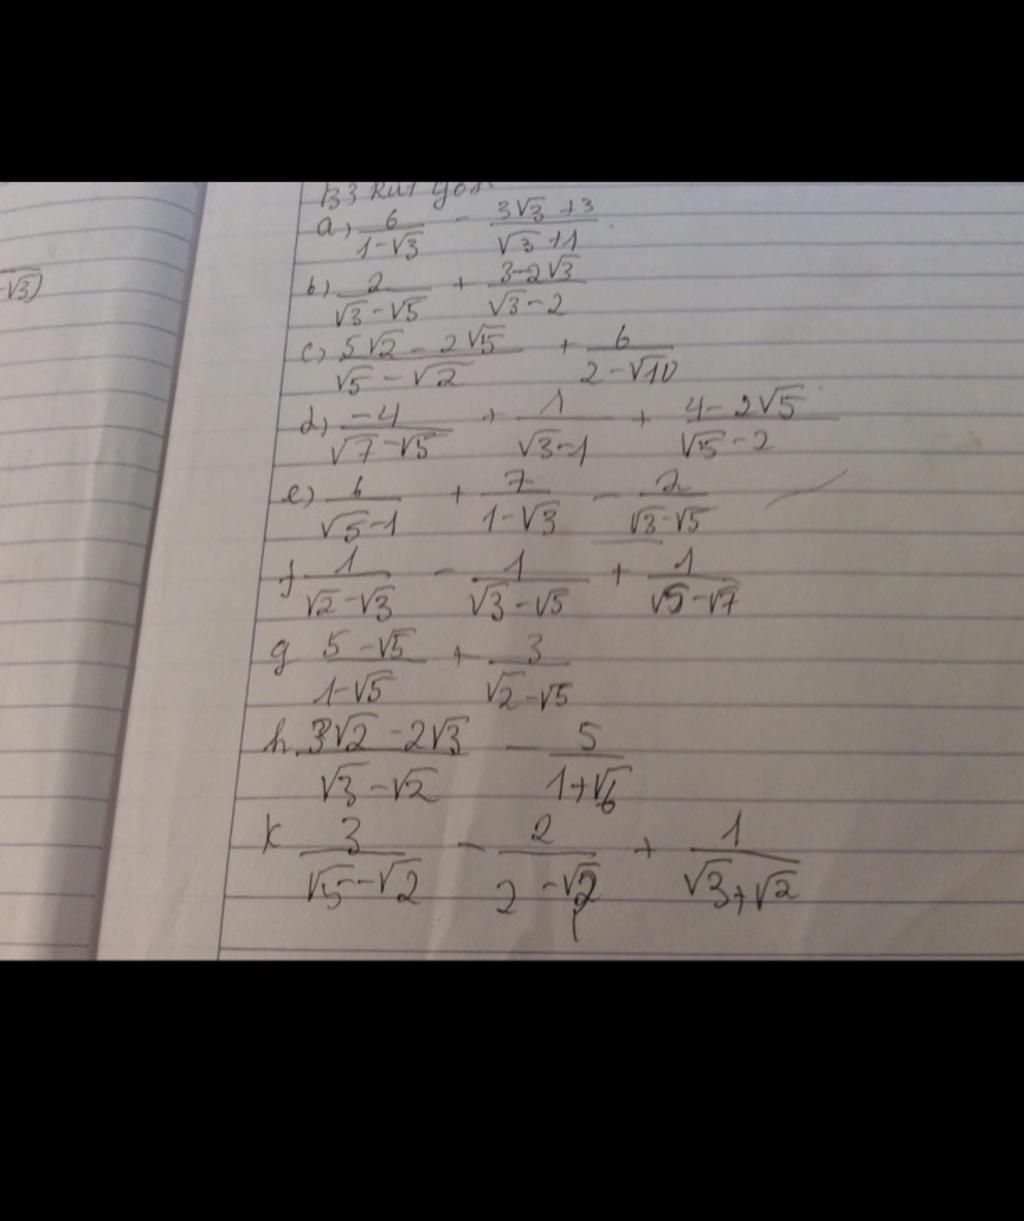 -√3)
B3 Rút gọn
a) 6/(1-√3) - (3√3+3)/(√3+1)
b) 2/(√3-√5) + (3-2√3)/(√3-2)
c) (5√2-2√5)/(√5-√2) + 6/(2-√10)
d) -4/(√7-√5) + 1/(√3-1) + (4-2√5)/(√5-2)
e) 6/(√5-1) + 7/(1-√3) - 2/(√3-√5)
f 1/(√2-√3) - 1/(√3-√5) + 1/(√5-√7)
g (5-√5)/(1-√5) + 3/(√2-√5)
h. (3√2-2√3)/(√3-√2) - 5/(1+√6)
k 3/(√5-√2) - 2/(2-√2) + 1/(√3+√2)